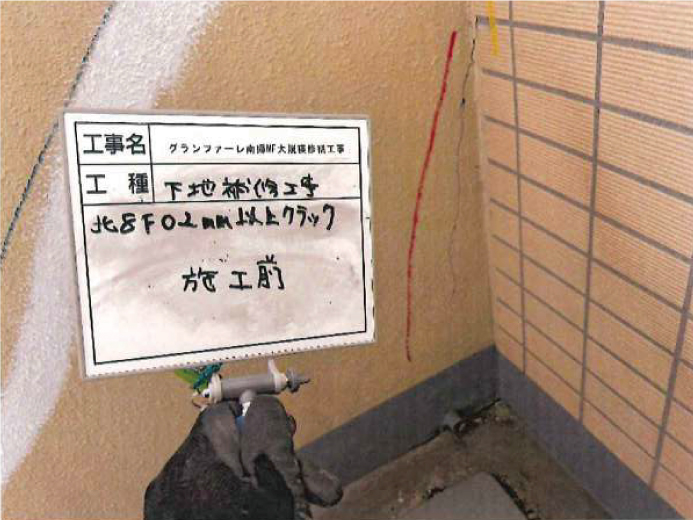 工事名 グランファーレ南掃MF大規模修繕工事
工種 下地補修工事
北8F 0.2mm以上クラック
施工前